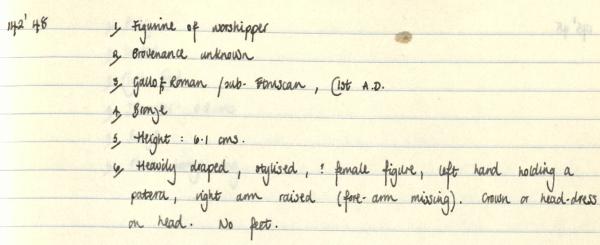 1142'48 1, Figurine of worshipper
2, Provenance unknown
3, Gallo-Roman / sub-Etruscan, C1st A.D.
4, Bronze
5, Height : 6.1 cms.
6, Heavily draped, stylised, ? female figure, left hand holding a
patera, right arm raised (fore-arm missing). Crown or head-dress
on head. No feet.